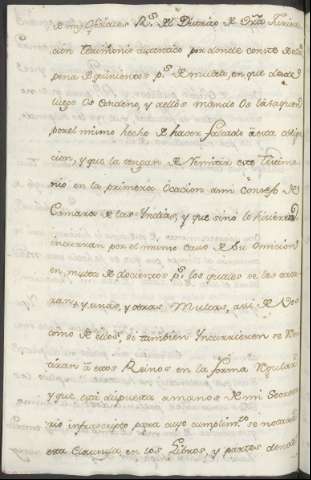 de mis Oficiales R.s del Distrito de esta Jurisdi
cion testimonio autorizado por donde conste de la
pena de quinientos p.s de multa, en que desde
luego os condeno, y a ellos mando os la saquen
por el mismo hecho de haver faltado á esta obliga
cion, y que la tengan de remitir este testimo
nio en la primera ocacion a mi Consejo de
Camara de las Yndias, y que sino lo hicieren
incurran por el mismo caso de su omicion
en multa de docientos p.s los quales se les saca
ran, y unas, y otras Multas, asi de Vos
como de ellos, si tambien Yncurrieren se Remi
tiran á estos Reinos en la forma Regular
y que está dispuesta a manos de mi Secreta
rio infrascripto para cuyo cumplim.to se notará
esta Clausula en los Libros, y partes donde